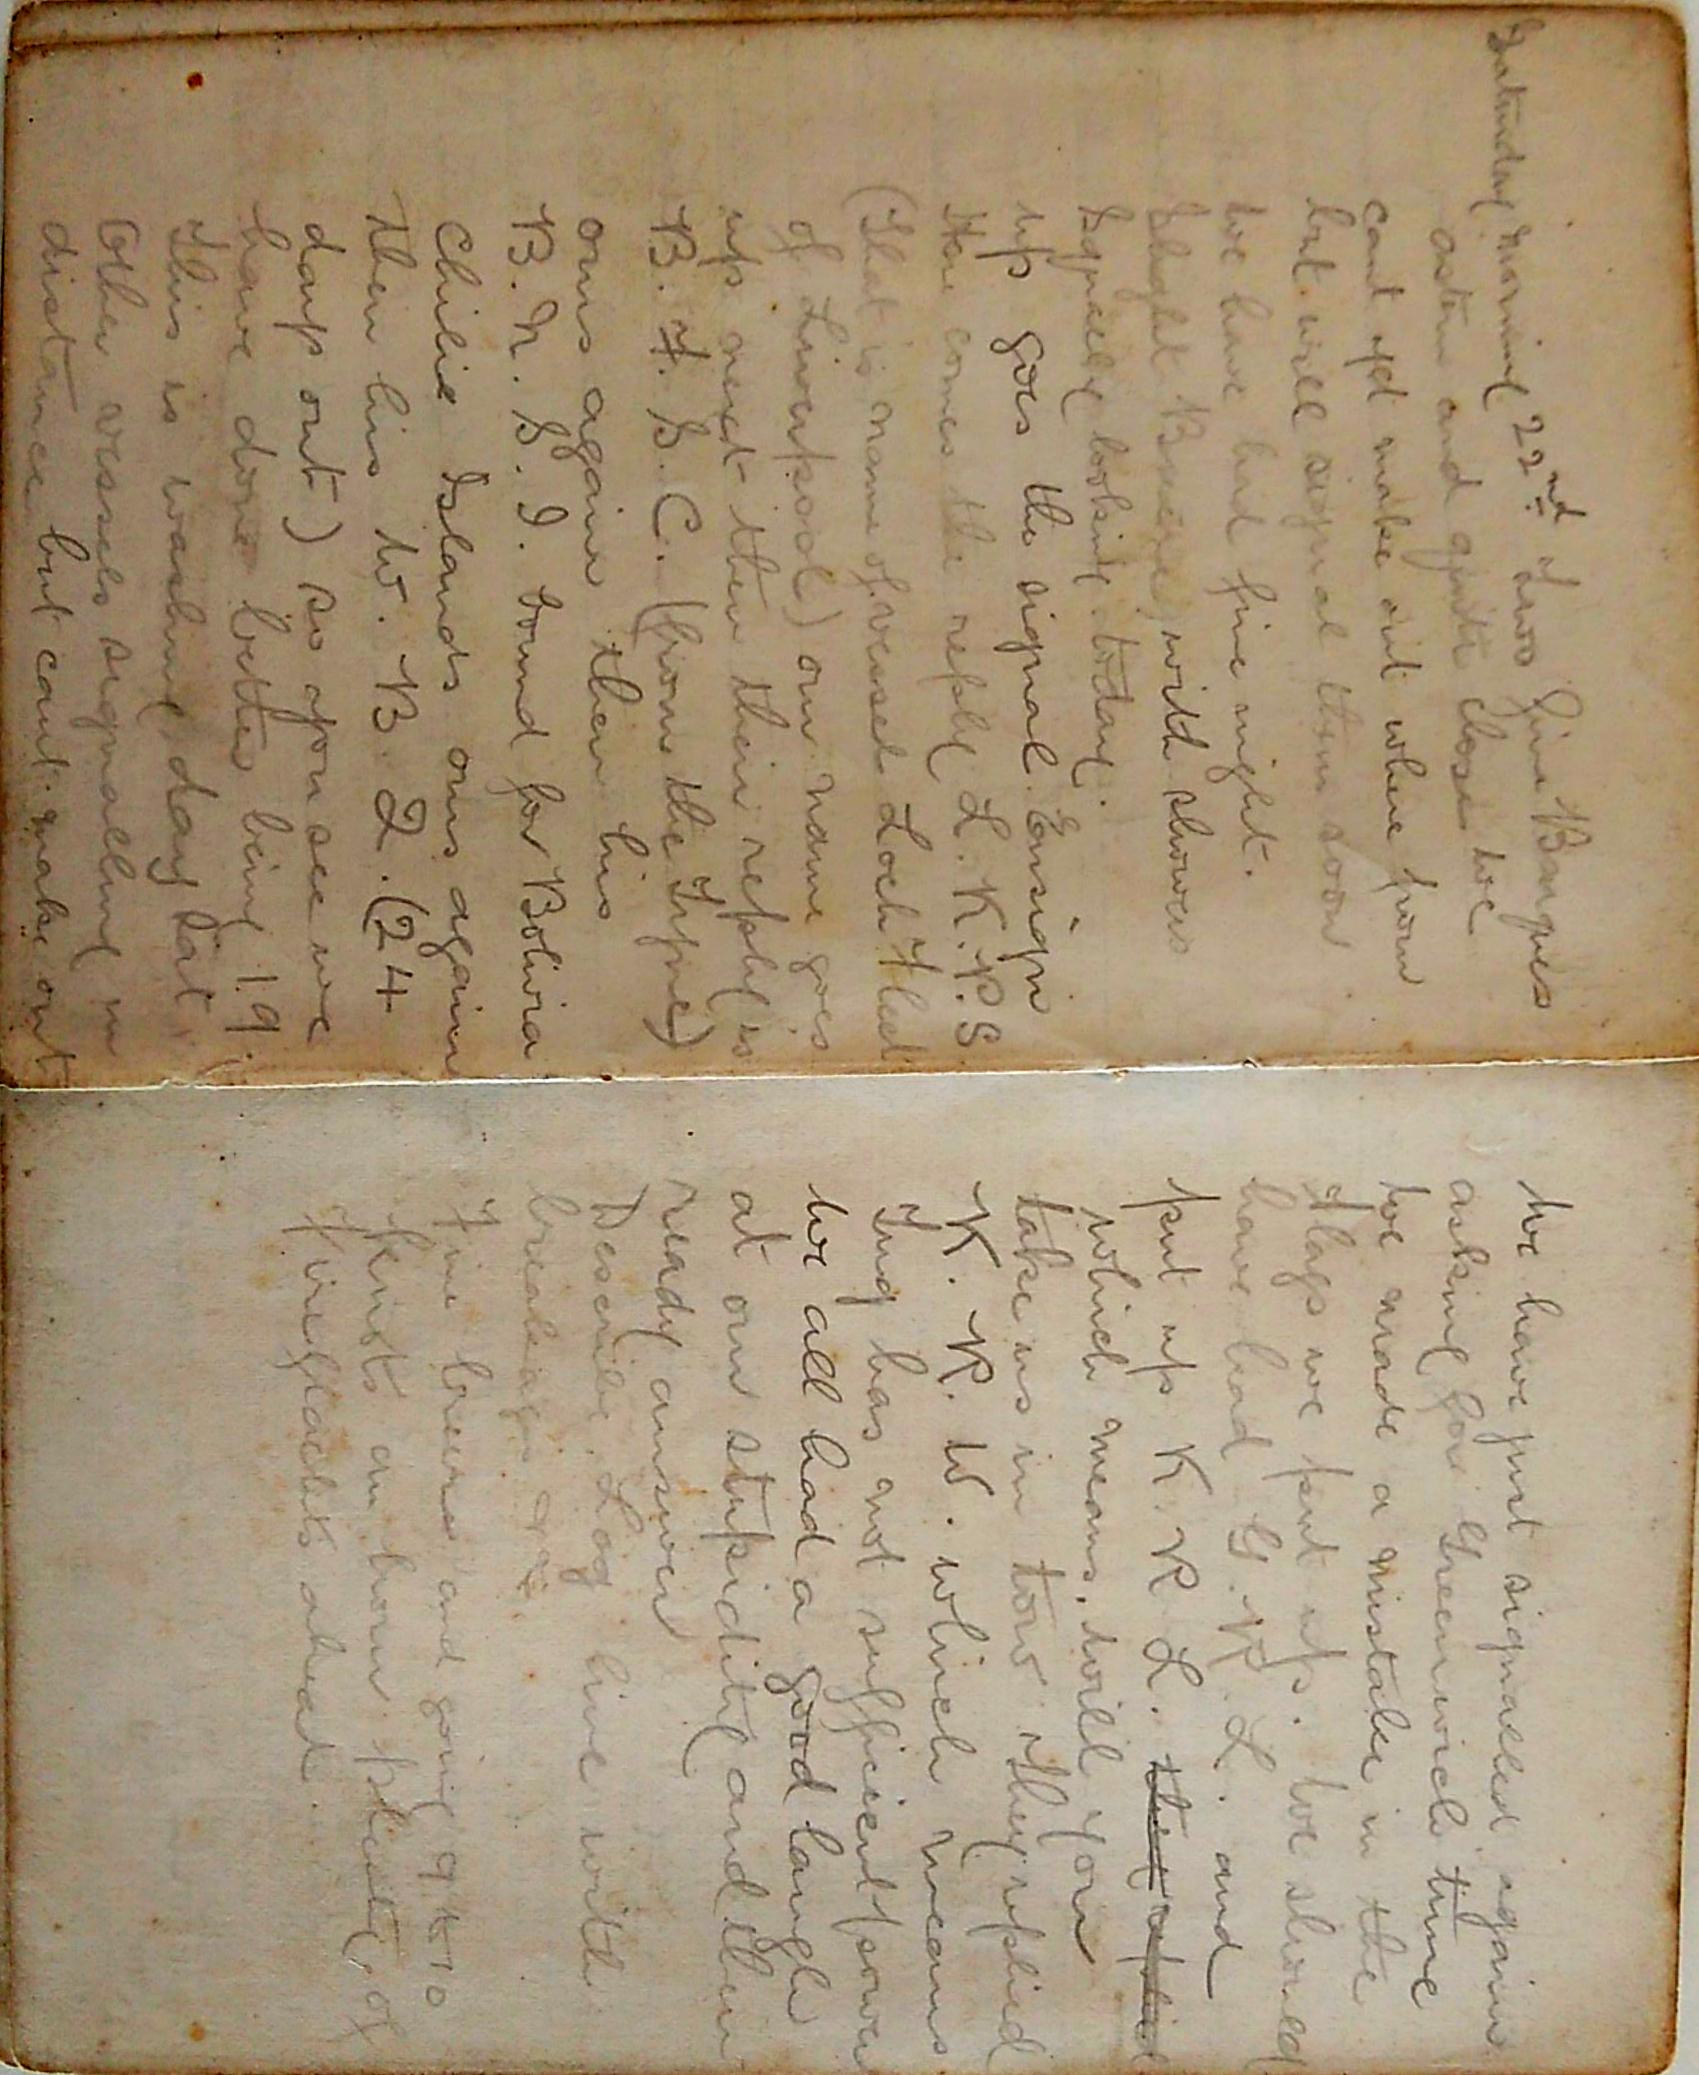 Saturday morning 22nd. Two fine Barques
astern and quite close we
cant yet make out where from
but will signal them soon
we have had fine night.
Slight Breeze, with showers
Squally looking today.
up goes the signal. Ensign
Here comes the reply L. K. P. S
(That is name of vessel Loch Fleet
of Liverpool) our name goes
up next then their reply is
B. F. S. C. (from the Tyne)
ours again then his
B. N. S. I. bound for Bolivia
Chilie Islands ours again
then his W. B. Q. (24
days out) so you see we
have done better being 19.
This is washing day Sat
Other vessels signalling in
distance but cant make out
We have just signalled again
asking for Greenwich time
we made a mistake in the
Flags we put up. we should
have had G. R. L. and
put up K. R L. they replied
which means, will you
take us in tow they replied
K. R. W. which means
Tug has not sufficient power
we all had a good laugh
at our stupidity and their
ready answer
Describe Log line with
breakages &c
Fine breeze and going 9 to 10
knots an hour plenty of
Fireflacks ahead.